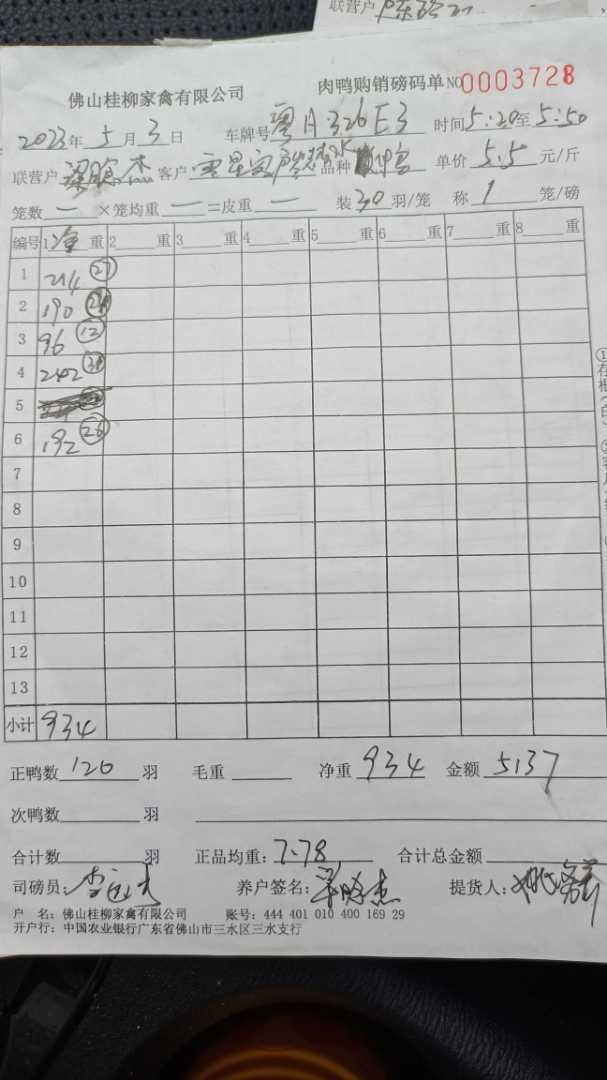 联营户
佛山桂柳家禽有限公司 肉鸭购销磅码单 NO 0003728
2023年 5 月 3 日 车牌号 粤A·326E3 时间 5:20至 5:50
联营户 梁 杰 客户 品种 单价 5.5 元/斤
笼数 一 ×笼均重 一 =皮重 一 装 30 羽/笼 称 1 笼/磅
编号 1 净 重 2 重 3 重 4 重 5 重 6 重 7 重 8 重
1 214 27
2 190
3 96 12
4 242
5
6 192
7
8
9
10
11
12
13
小计 934
正鸭数 120 羽 毛重 净重 934 金额 5137
次鸭数 羽
合计数 羽 正品均重: 7.78 合计总金额
司磅员: 养户签名: 提货人:
户 名: 佛山桂柳家禽有限公司 账号: 444 401 010 400 169 29
开户行: 中国农业银行广东省佛山市三水区三水支行